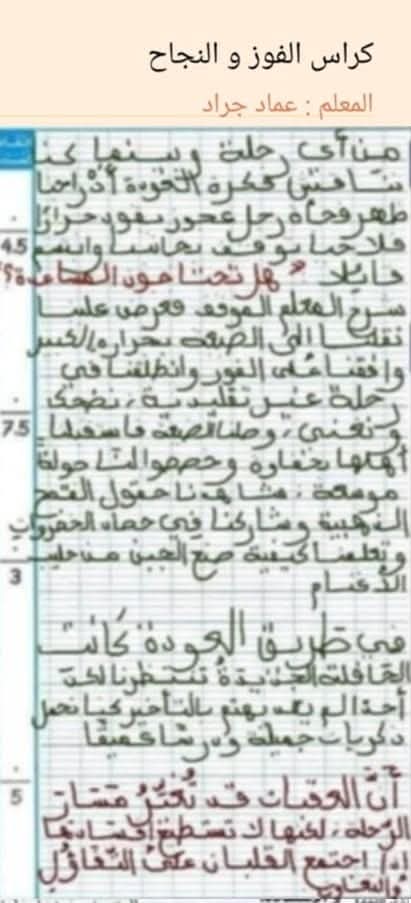 كراس الفوز و النجاح
المعلم : عماد جراد
من أي رحلة وبينما كنا
نناقش فكرة العودة أدراجنا
ظهر فجأة رجل عجوز يقود جرارًا
4.5
فلاحيا توقف بجانبنا وابتسم
قائلا " هل تحتاجون المساعدة؟
شرح المعلم الموقف فعرض علينا
نقلنا إلى الضيعة بجراره الكبير
وافقنا على الفور وانطلقنا في
رحلة غير تقليدية، نضحك
7.5
ونغني، وصلنا الضيعة فاستقبلنا
أهلها بحفاوة وخصصوا لنا جولة
موسعة، شاهدنا حقول القمح
الذهبية وشاركنا في حصاد الخضروات
وتعلمنا كيفية صنع الجبن من حليب
3
الأغنام
في طريق العودة كانت
الحافلة الجديدة تنتظرنا لكن
أحدا لم يعد يهتم بالتأخير كنا نحمل
ذكريات جميلة ودرسا عميقا
5
أن العقبات قد تغير مسار
الرحلة، لكنها لا تستطيع إفسادها
إذا اجتمع القلبان على التفاؤل
والتعاون